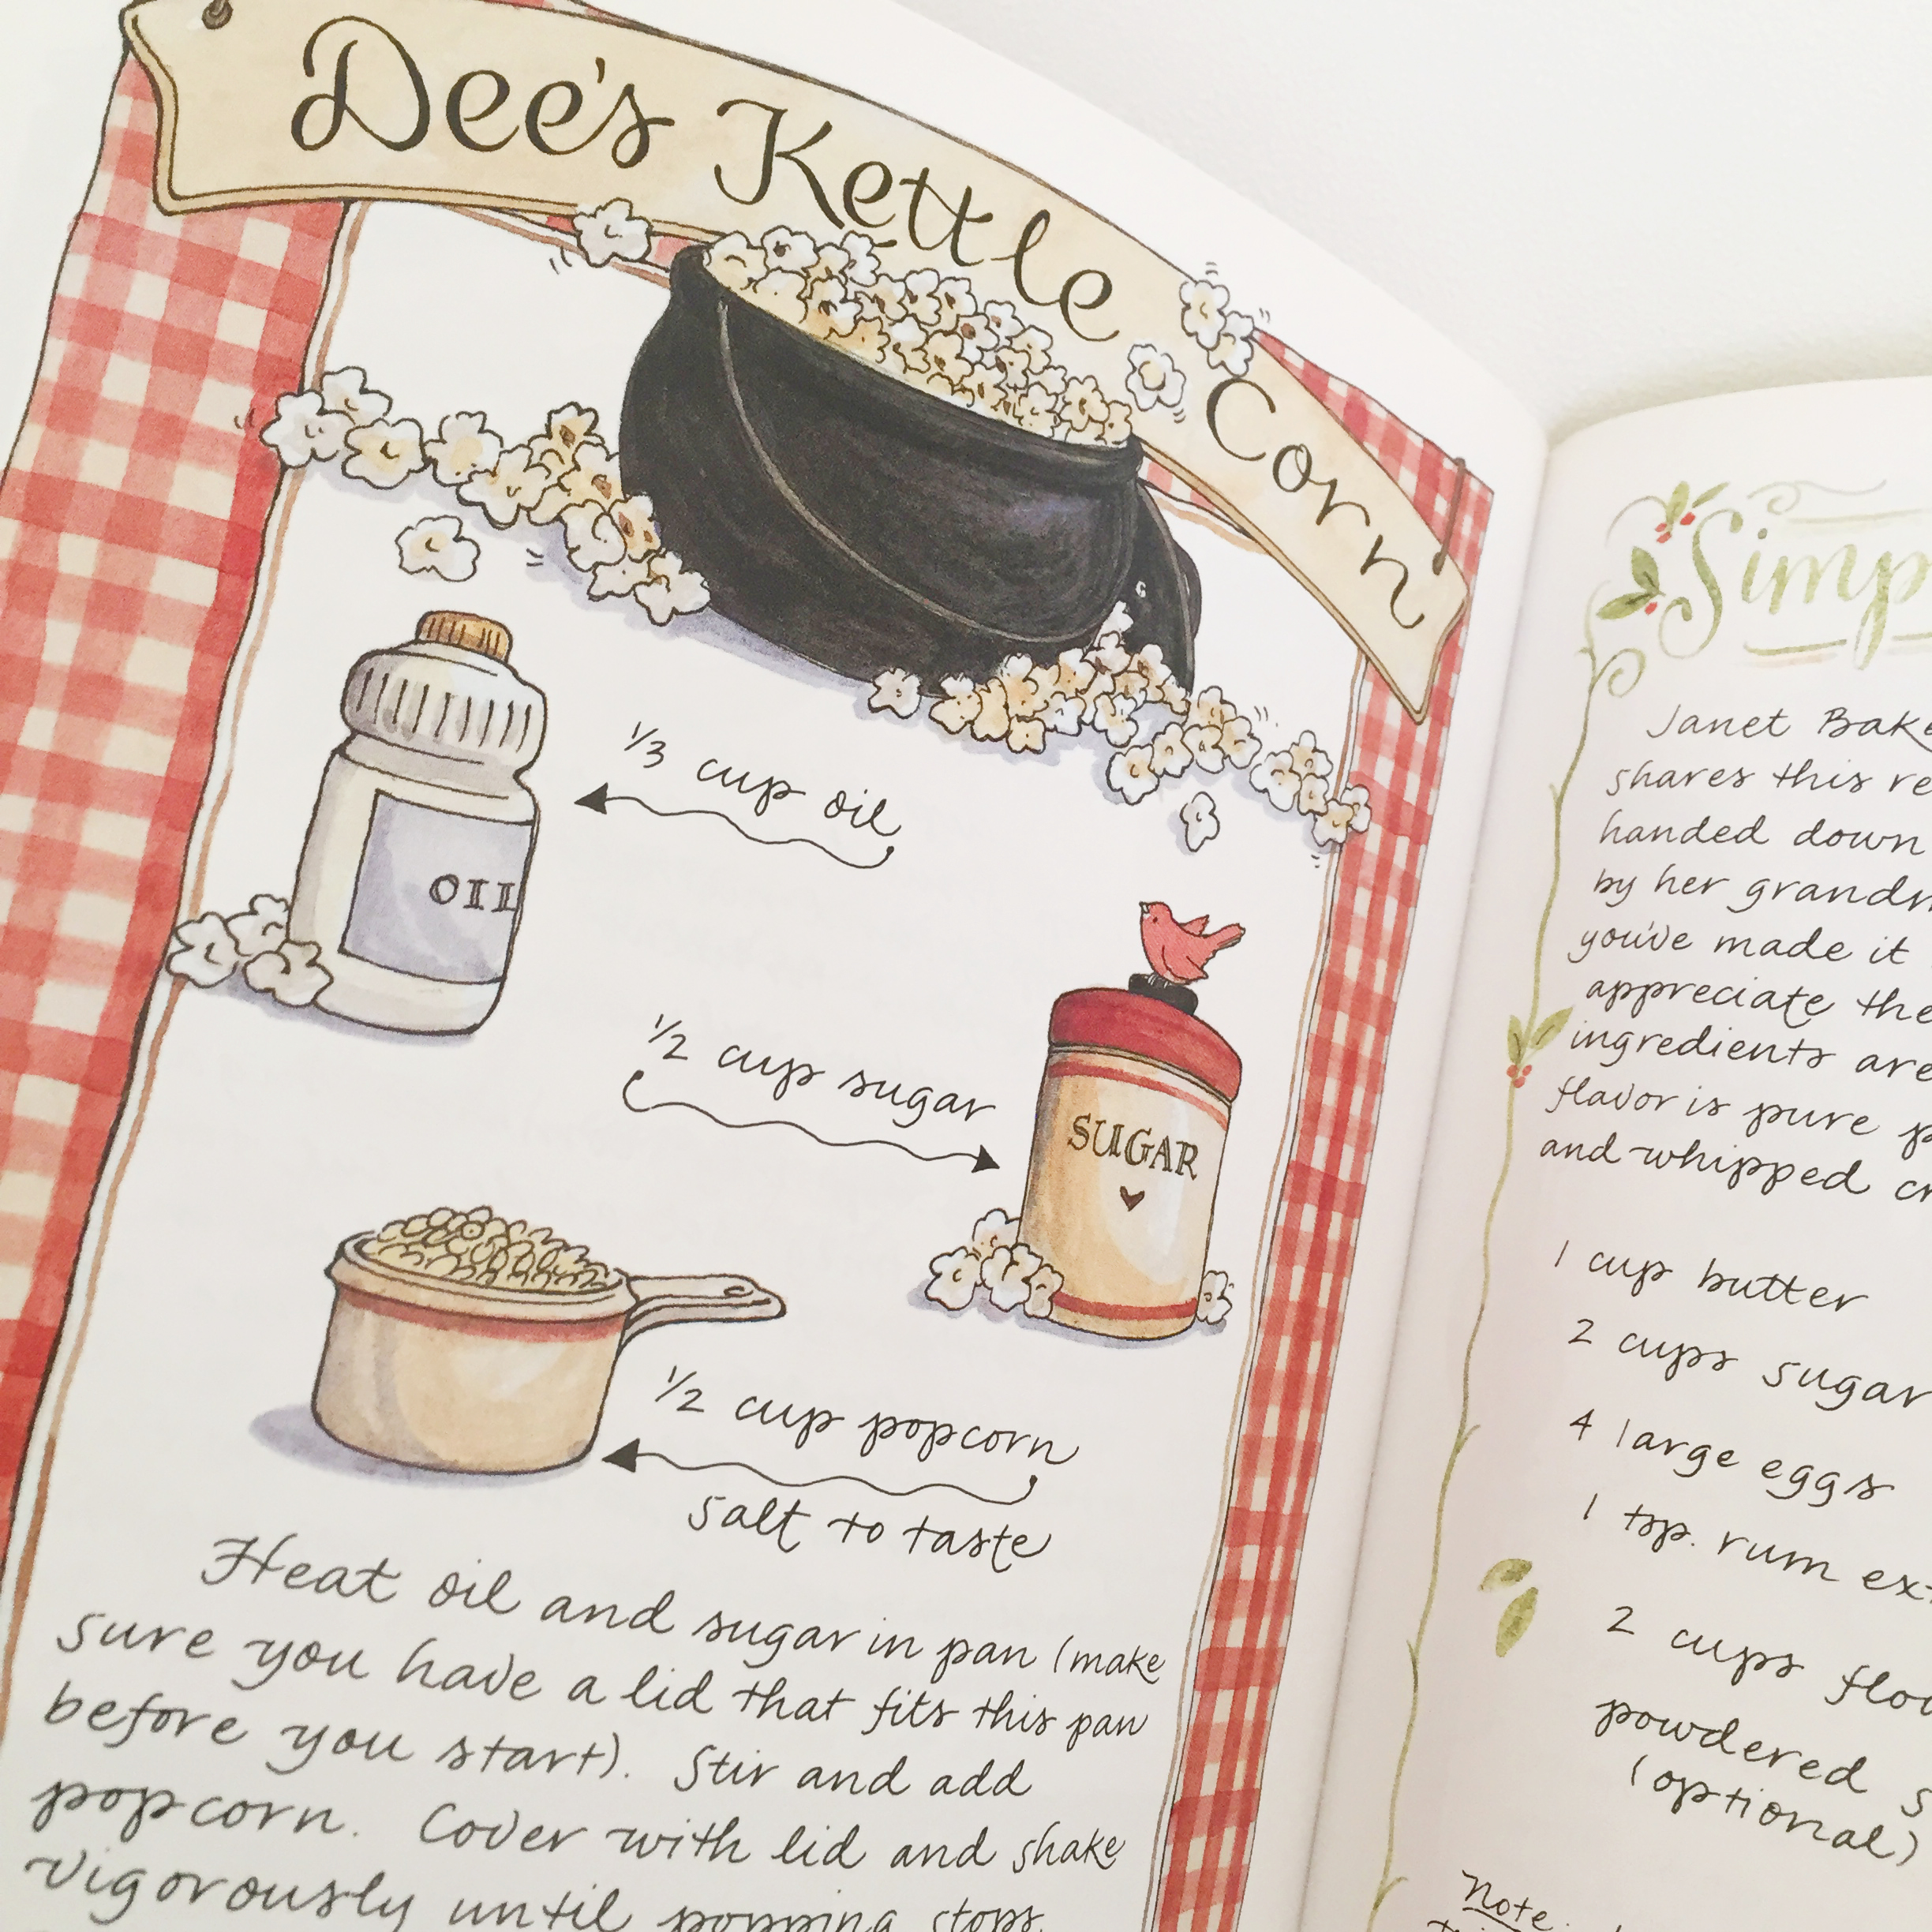 Dee's Kettle Corn
1/3 cup oil
OIL
1/2 cup sugar
SUGAR
1/2 cup popcorn
salt to taste
Heat oil and sugar in pan (make
sure you have a lid that fits this pan
before you start). Stir and add
popcorn. Cover with lid and shake
vigorously until popping stops.
Janet
shares this
handed down
by her
you've made it
appreciate
ingredients are
flavor is pure
and whipped
1 cup butter
2 cups sugar
4 large eggs
1 tsp. rum
2 cups
powdered
(optional)
Note: